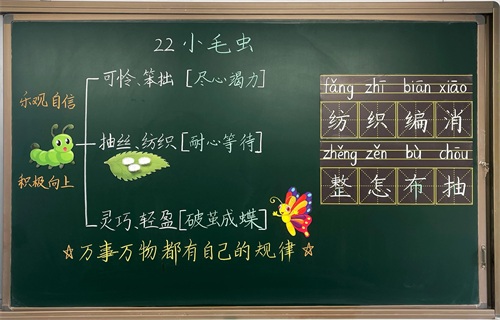 22 小毛虫
乐观自信
积极向上
可怜、笨拙 [尽心竭力]
抽丝、纺织 [耐心等待]
灵巧、轻盈 [破茧成蝶]
☆万事万物都有自己的规律☆
fǎng zhī biān xiāo
纺 织 编 消
zhěng zěn bù chōu
整 怎 布 抽